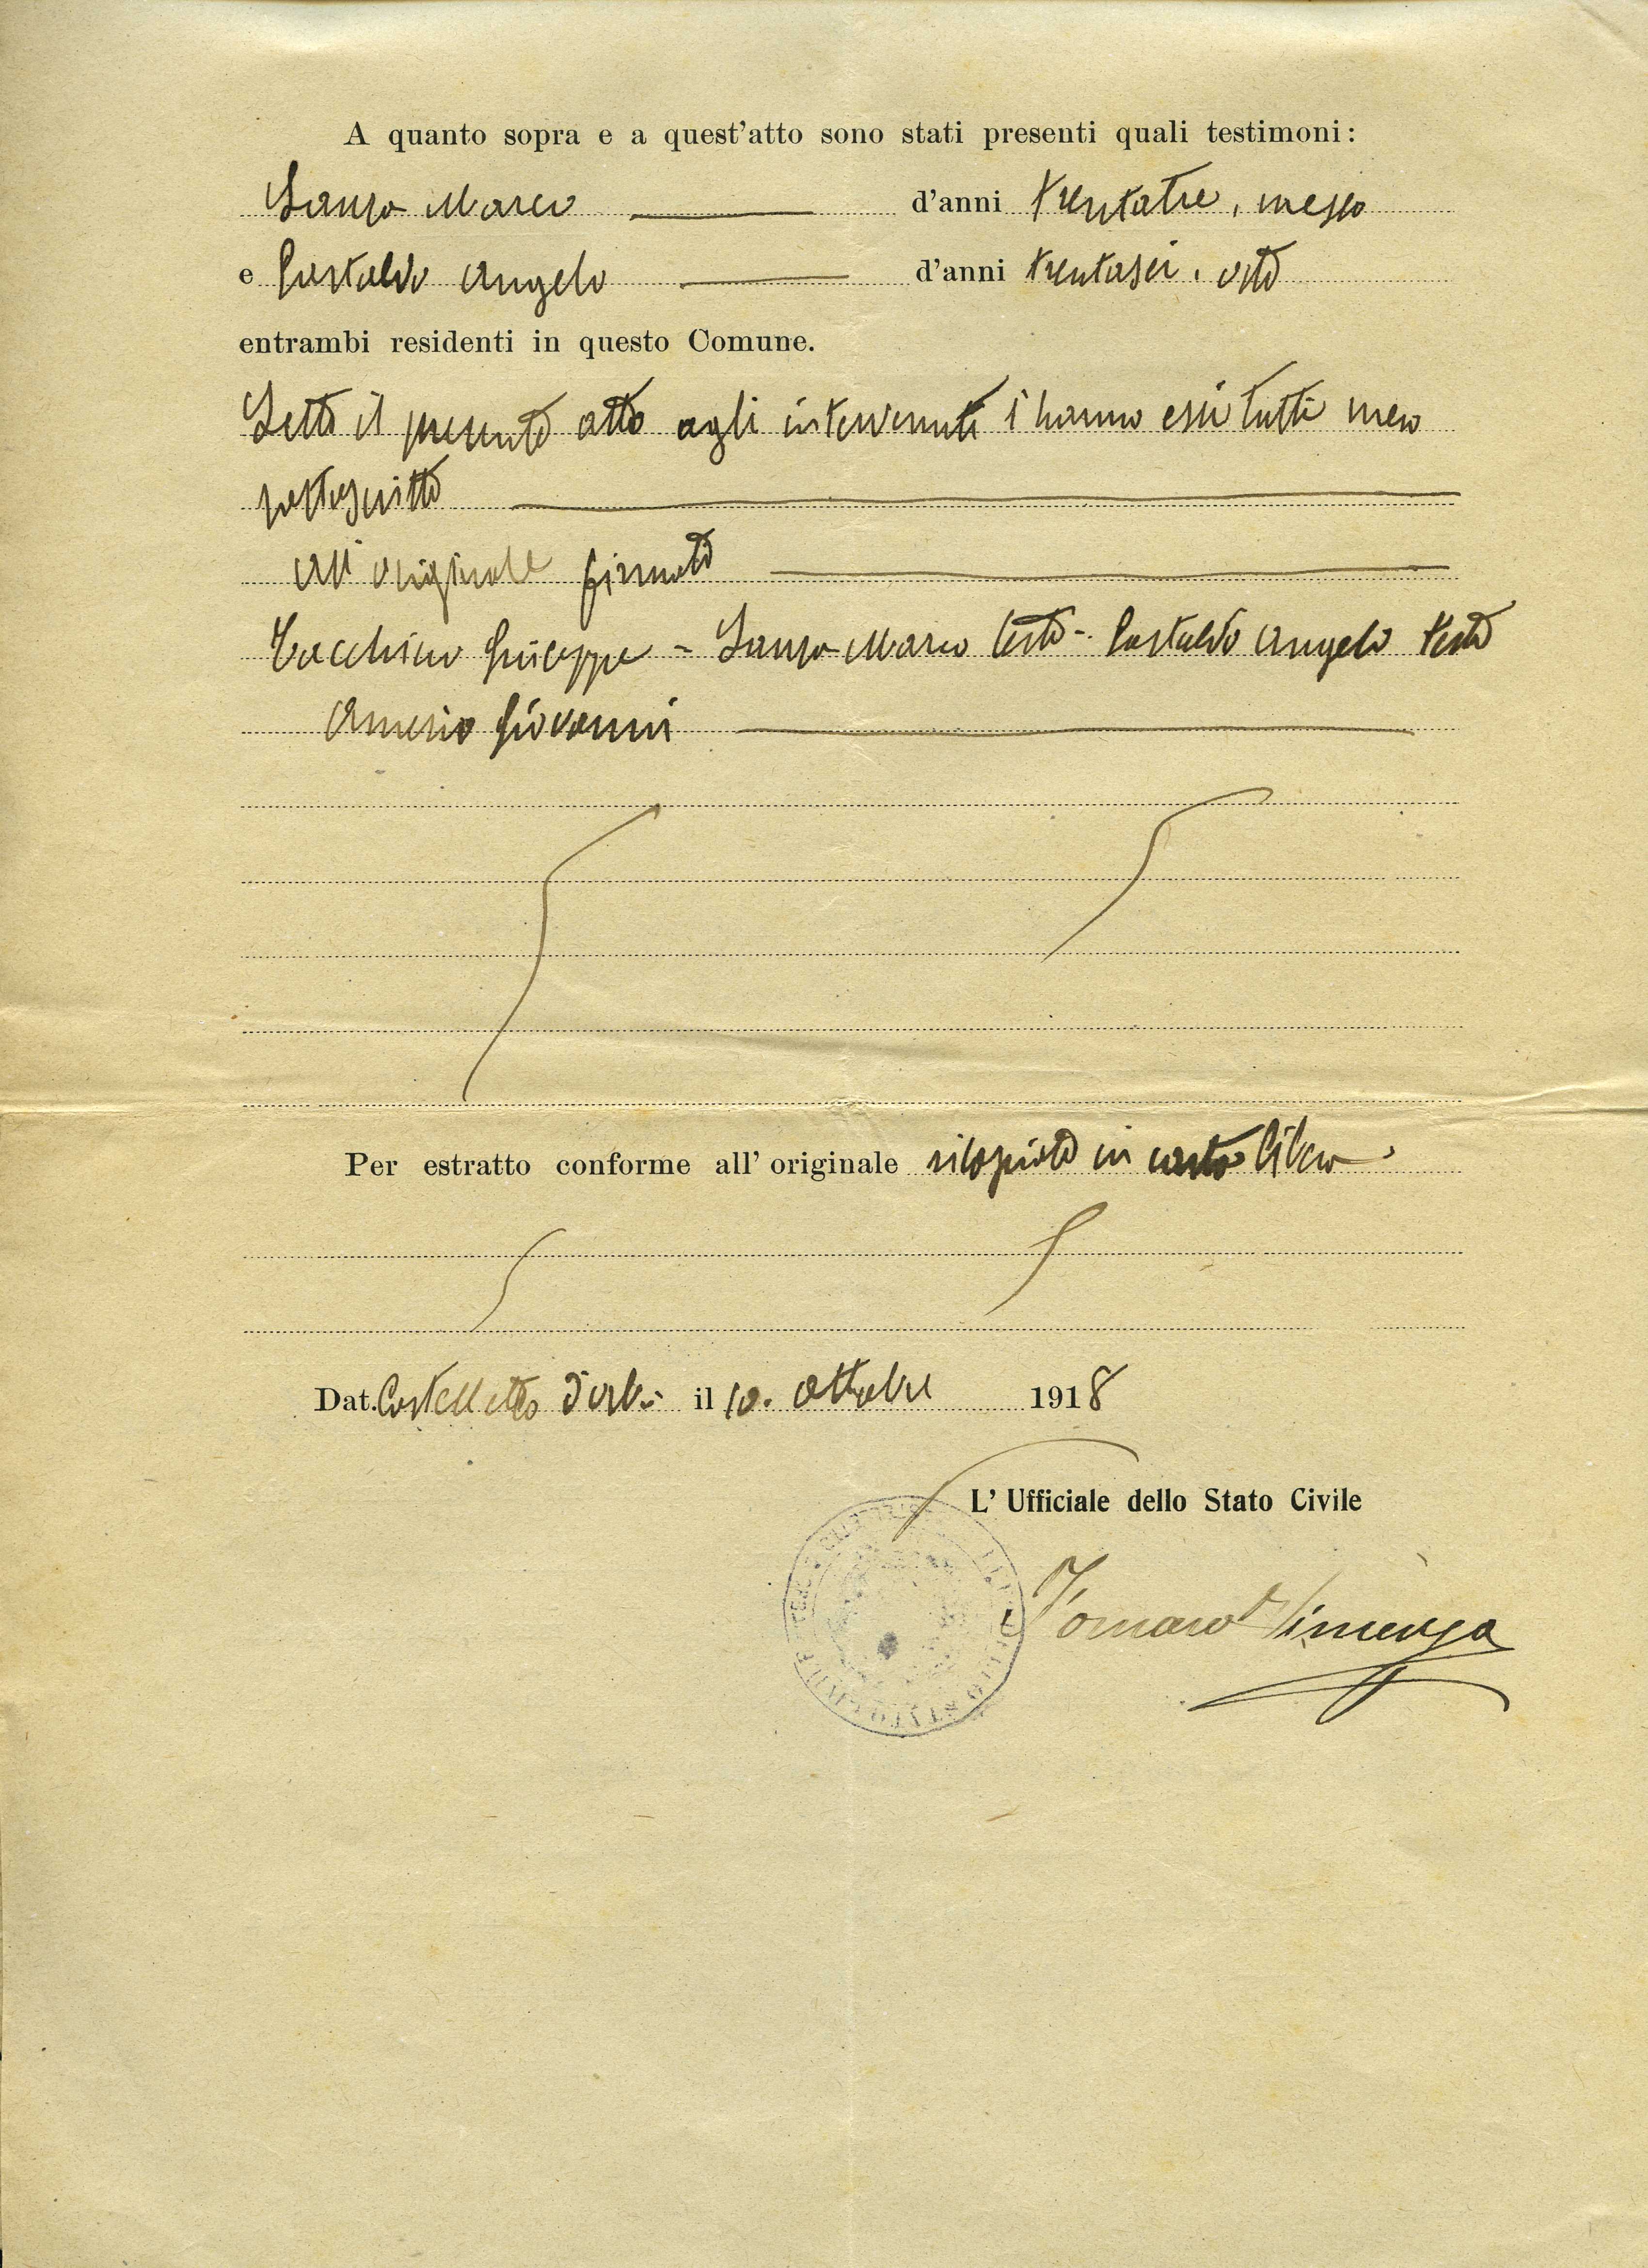 A quanto sopra e a quest'atto sono stati presenti quali testimoni:
Marco d'anni trentatre, messo
e Gastaldo Angelo d'anni trentasei, oste
entrambi residenti in questo Comune.
Letto il presente atto agli intervenuti l'hanno essi tutti meco
sottoscritto
All'originale firmati
Tacchino Giuseppe - Marco teste - Gastaldo Angelo teste
Amerio Giovanni
Per estratto conforme all'originale rilasciato in carta libera.
Dat. Castelletto d'Orba il 10. Ottobre 1918
L'Ufficiale dello Stato Civile